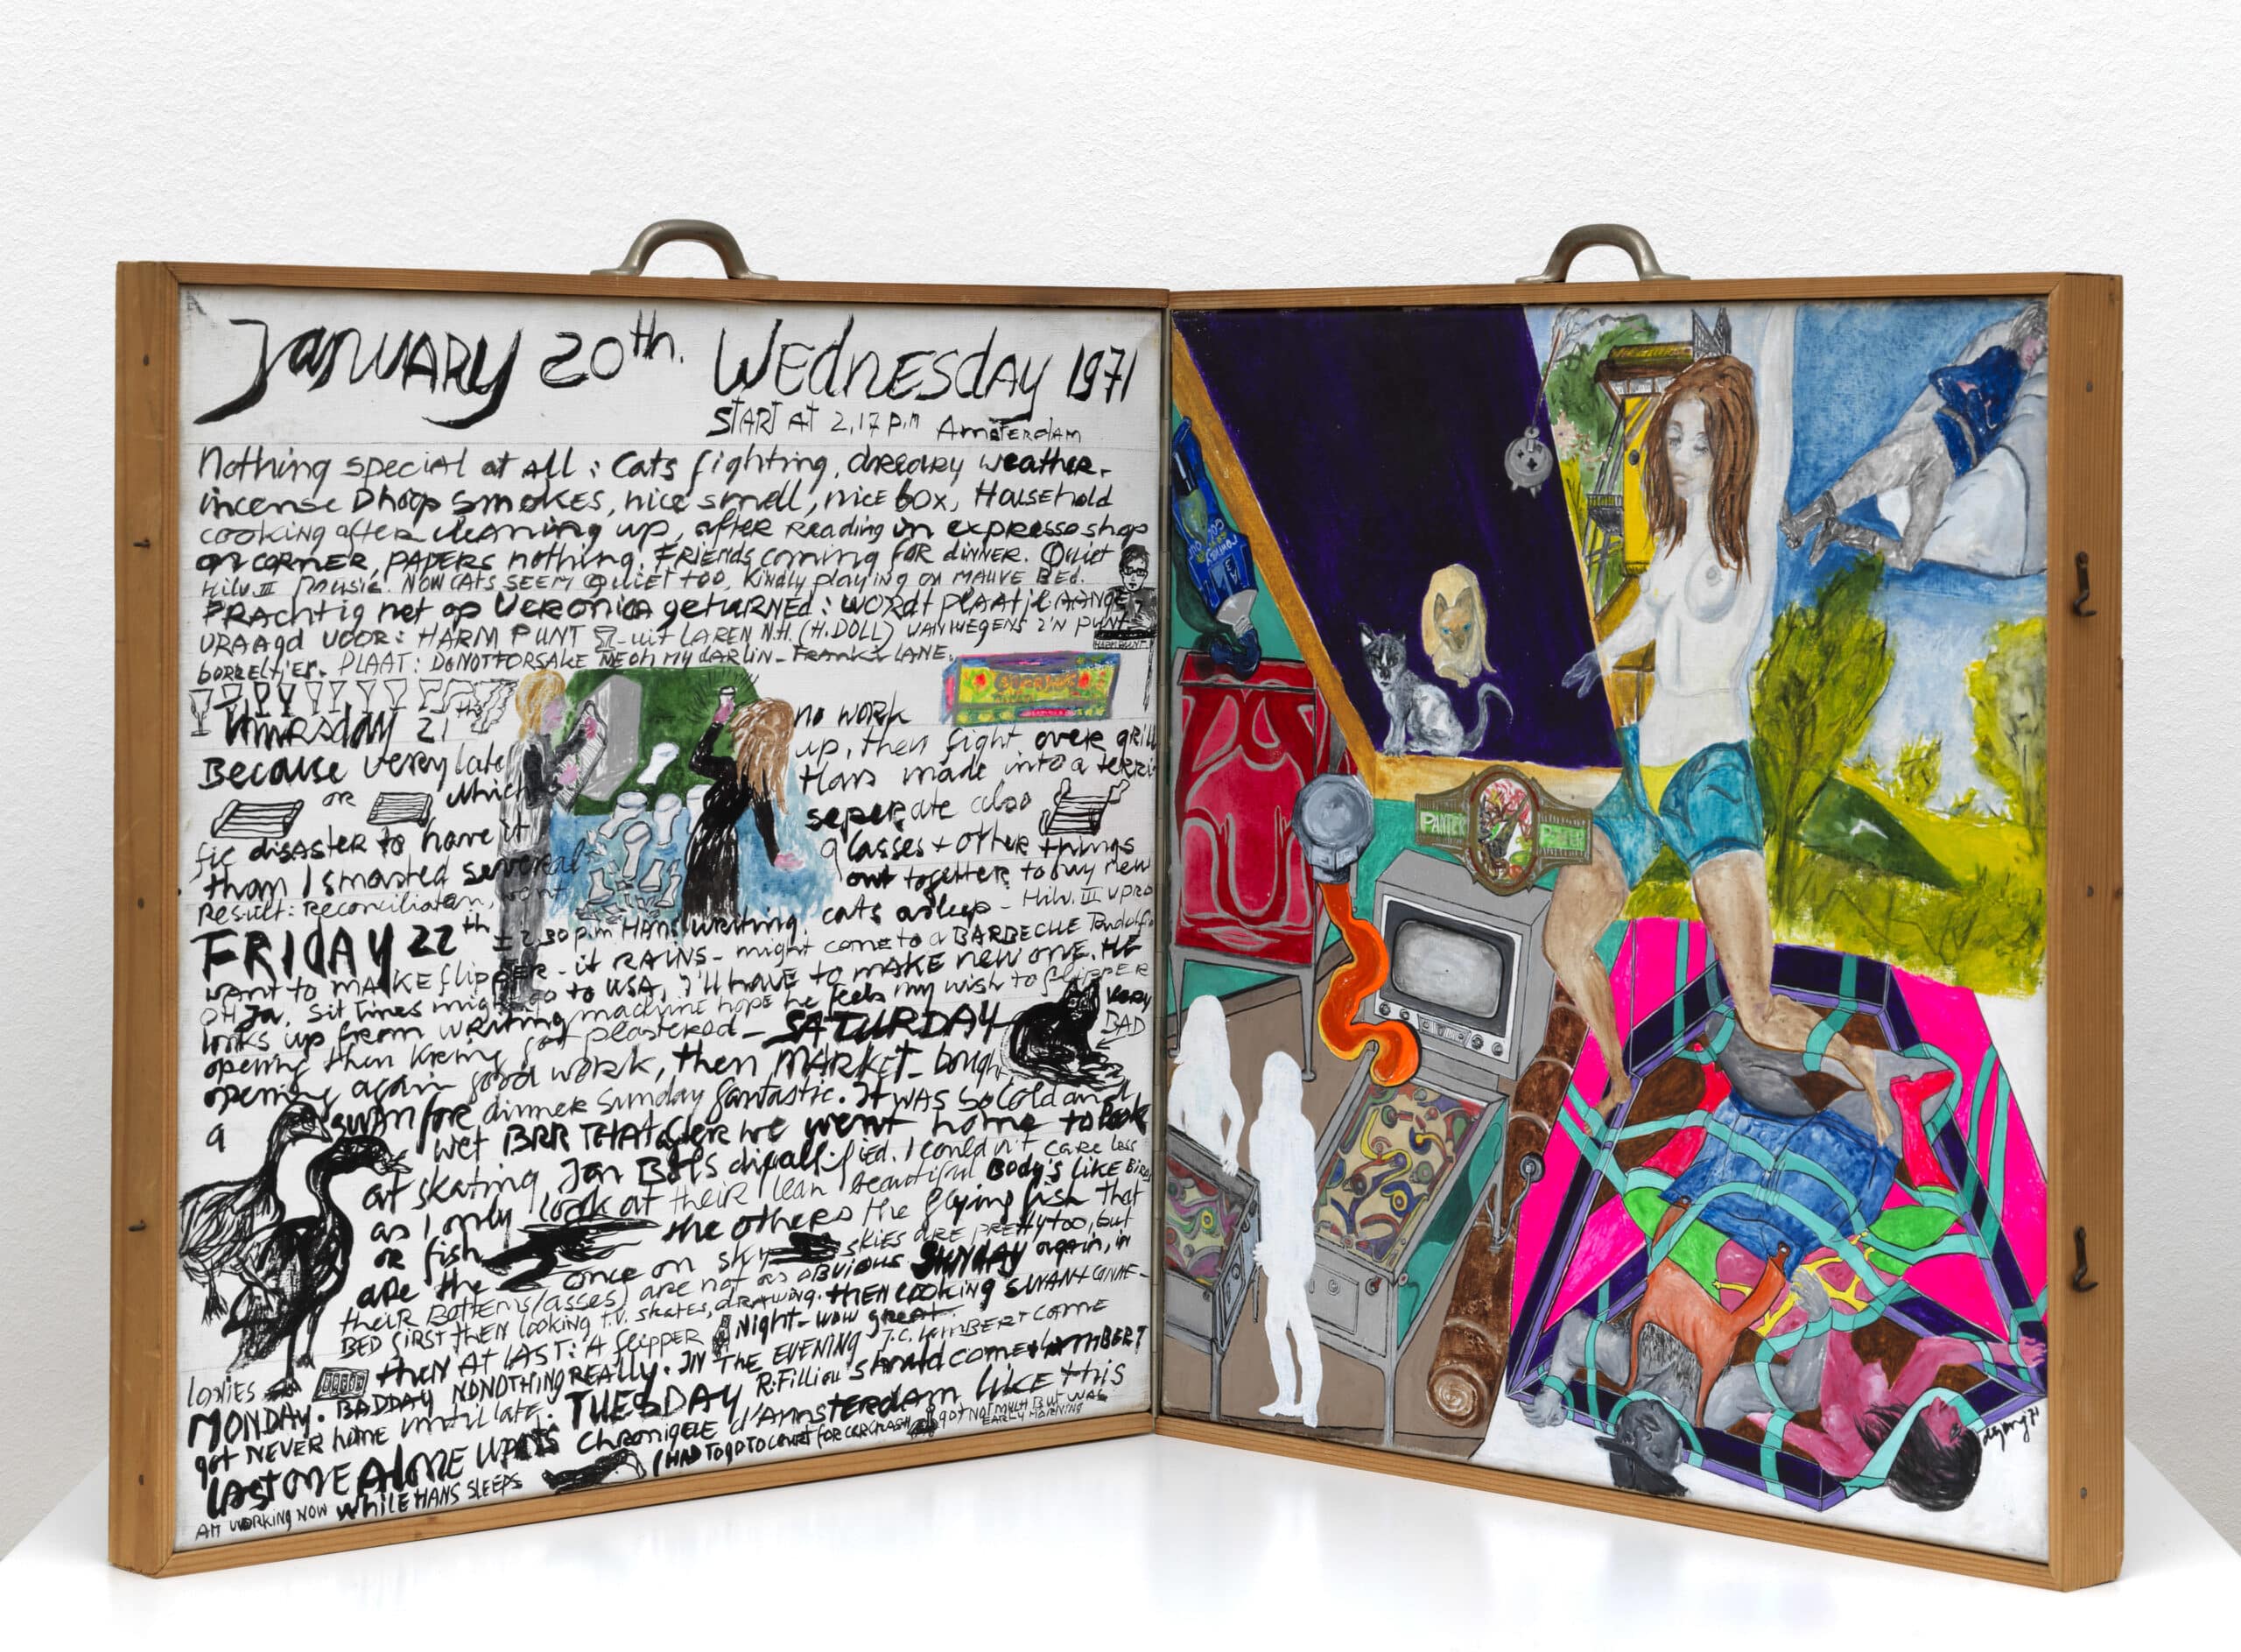 January 20th. Wednesday 1971
START AT 2,17 P.M Amsterdam
Nothing special at all: Cats fighting, dreary weather.
incense Dhoop smokes, nice smell, nice box, Household
cooking after cleaning up, after Reading in expresso shop
on corner, papers nothing. Friends coming for dinner. Quiet
Hilv. III music. Now cats seem quiet too, kindly playing on mauve bed.
Prachtig net op Veronica geturned: wordt plaatje aange
vraagd voor: HARM PUNT uit LAREN N.H. (H. DOLL) VANWEGENS Z'N PUNT
borreltjes. PLAAT: DO NOT FORSAKE ME OH MY DARLIN - FRANKIE LANE.
HARM PUNT
Thursday 21th
no work
Because very late up, then fight over grill
or which Hans made into a terri
fic disaster to have it seperate also
than I smashed several glasses + other things
Result: Reconciliation, went out together to buy new
FRIDAY 22th ± 2.30 p.m Hans writing. cats asleep - Hilv. III
want to MAKE flipper - it RAINS - might come to a BARBECUE
OH Ja, Sit Times might go to USA, I'll have to make new one. HE
looks up from writing machine hope he feels my wish to flipper
opening then got plastered - SATURDAY
VERY BAD
opening again good work, then MARKET - bought
a swan for dinner Sunday fantastic. It was so cold and
wet BRR THAT after we went home to look
at skating Jan Bols I couldn't care less
as I only look at their lean beautiful Body's like Birds
or fish the others the flying fish that
are the once on sky skies are pretty too, but
their Bottems (asses) are not as obvious. SUNDAY again, in
BED first then looking T.V. skates, drawing. then cooking SWAN +
then AT LAST: A flipper Night - wow great.
lonies
MONDAY. BAD DAY NO NOTHING REALLY. IN THE EVENING J.C. LAMBERT COME
got NEVER home until late. TUESDAY R. Filliou should come + LAMBERT
LAST ONE ALONE Chronique d'Amsterdam LIKE this
I HAD TO GO TO COURT FOR CAR CRASH got NOT MUCH BUT WAS EARLY MORNING
AM WORKING NOW while HANS SLEEPS
PANTER